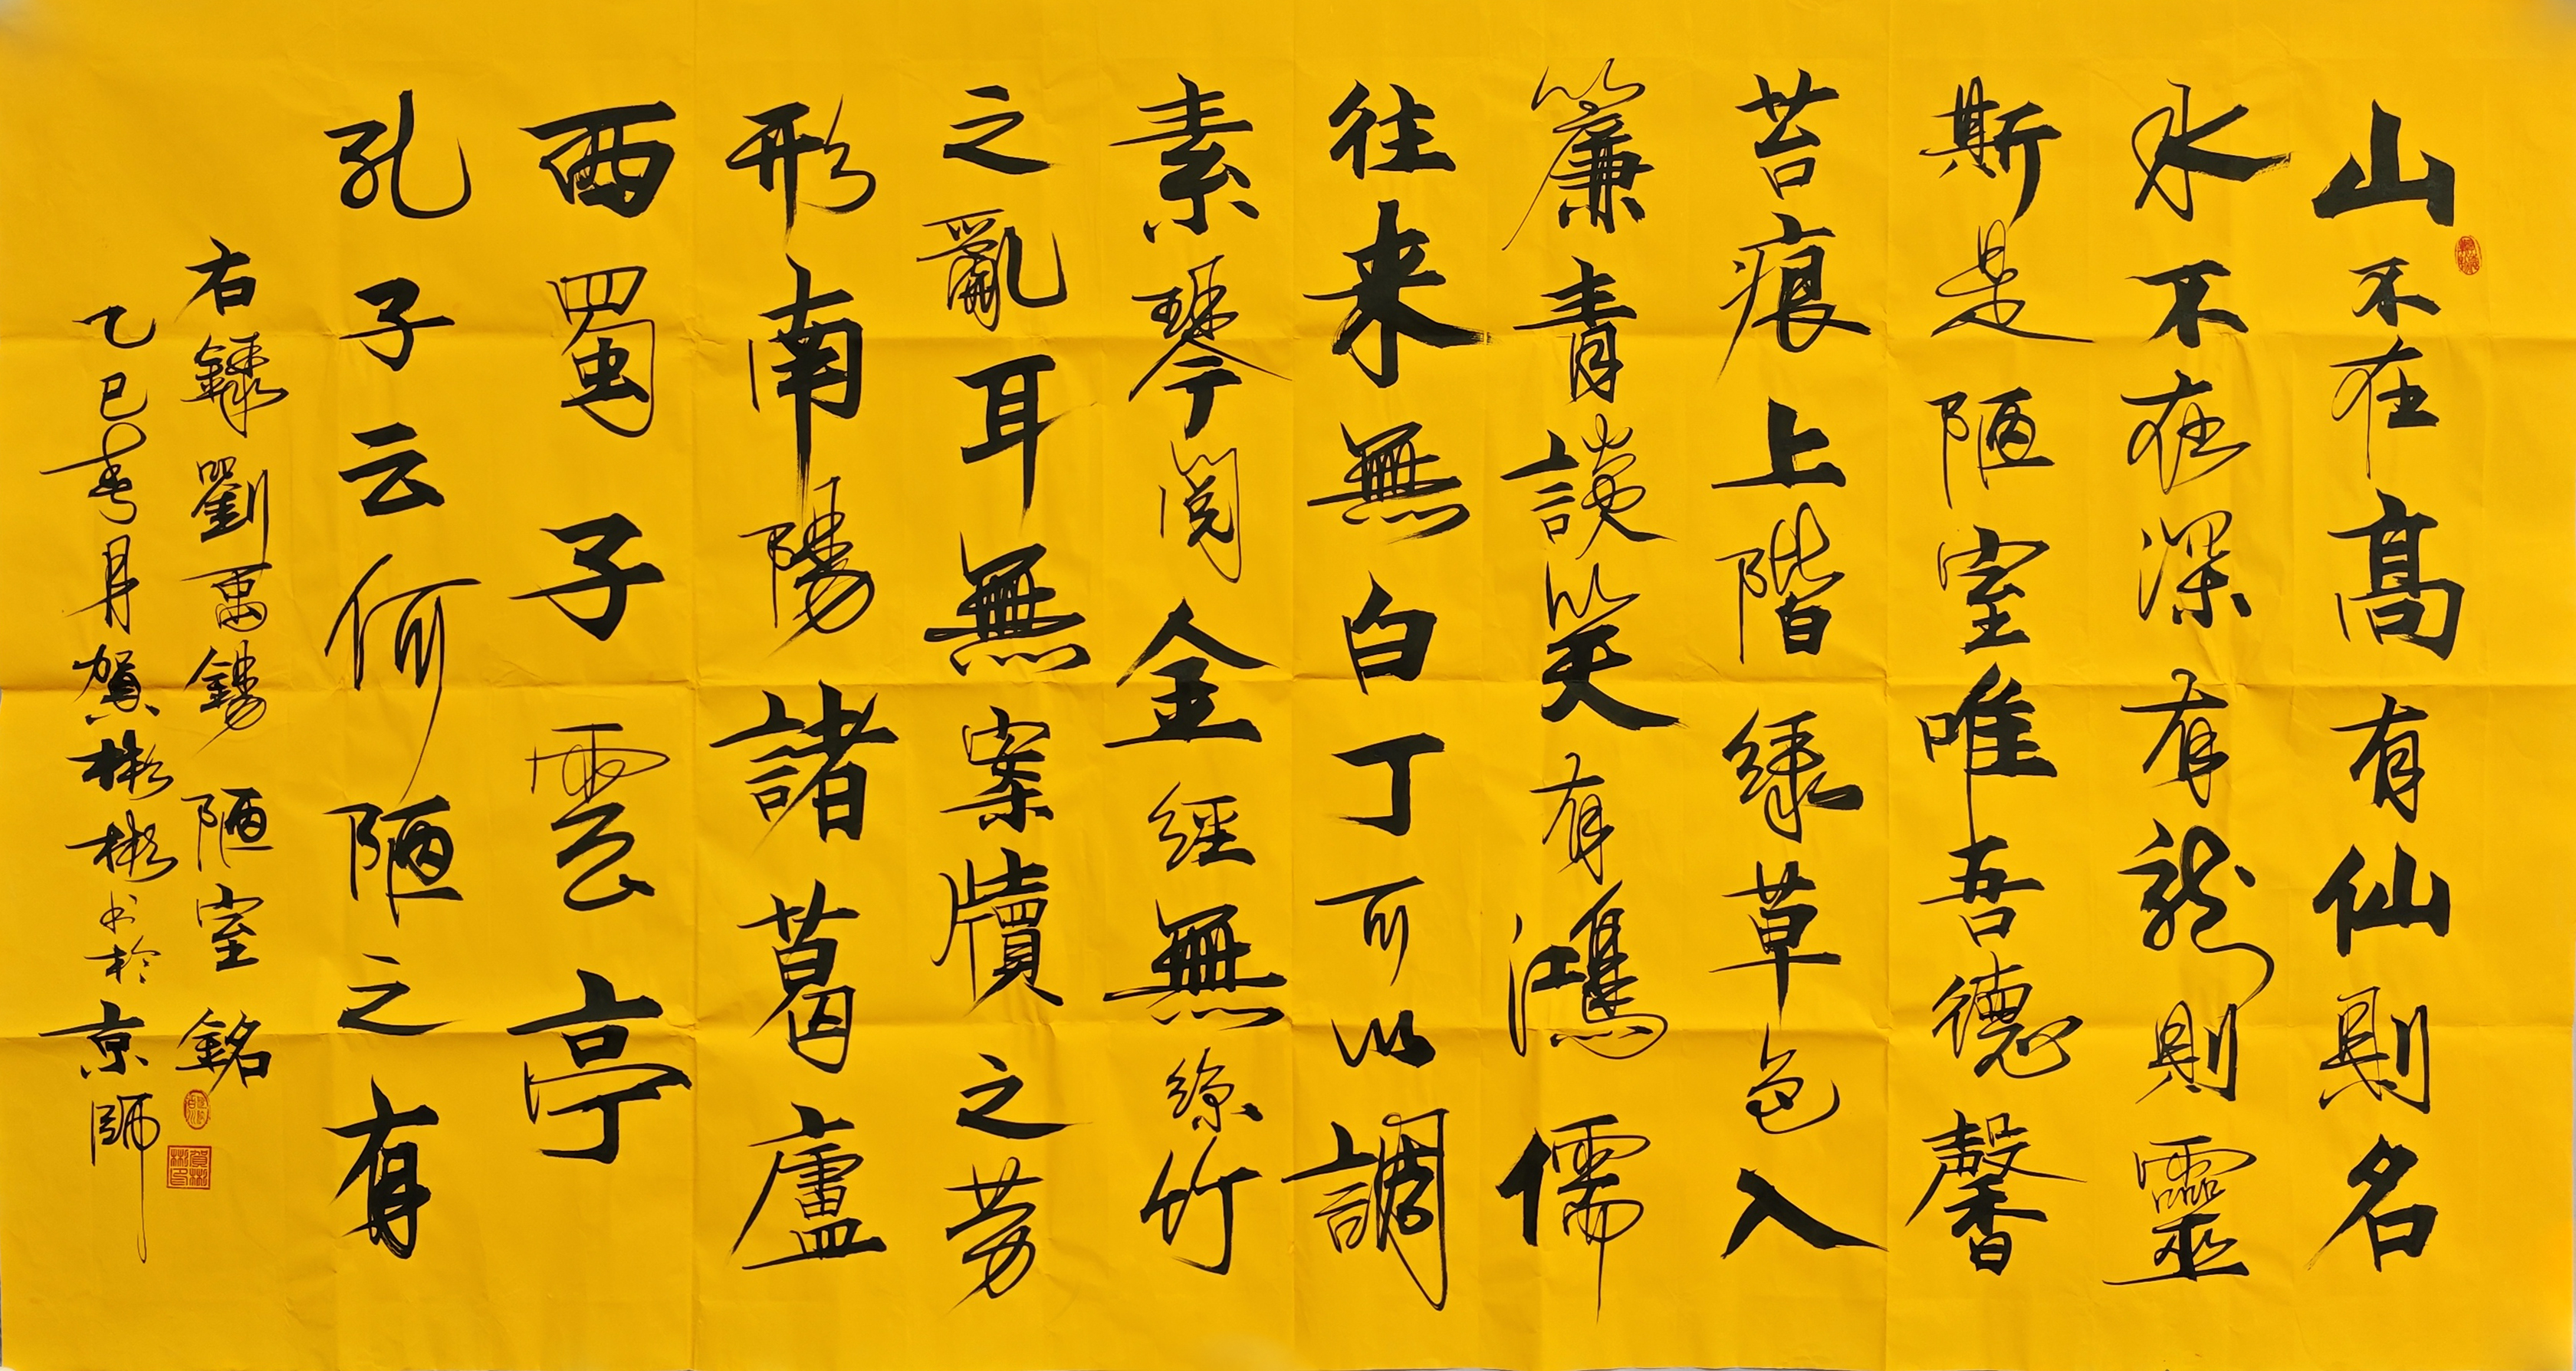 山不在高有仙則名
水不在深有龍則靈
斯是陋室唯吾德馨
苔痕上階緑草色入
簾青談笑有鴻儒
往来無白丁可以調
素琴閲金經無絲竹
之亂耳無案牘之劳
形南陽諸葛廬
西蜀子雲亭
孔子云何陋之有
右録劉禹錫陋室銘
乙巳春月賀彬彬书於京師
賀彬彬印